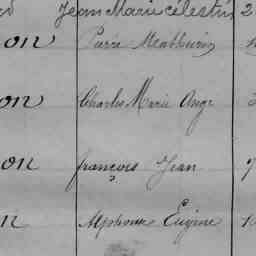 Jean Marie célestin 2
on Pierre Mathurin
on Charles Marie Ange
on françois Jean 7
n Alphonse Eugène